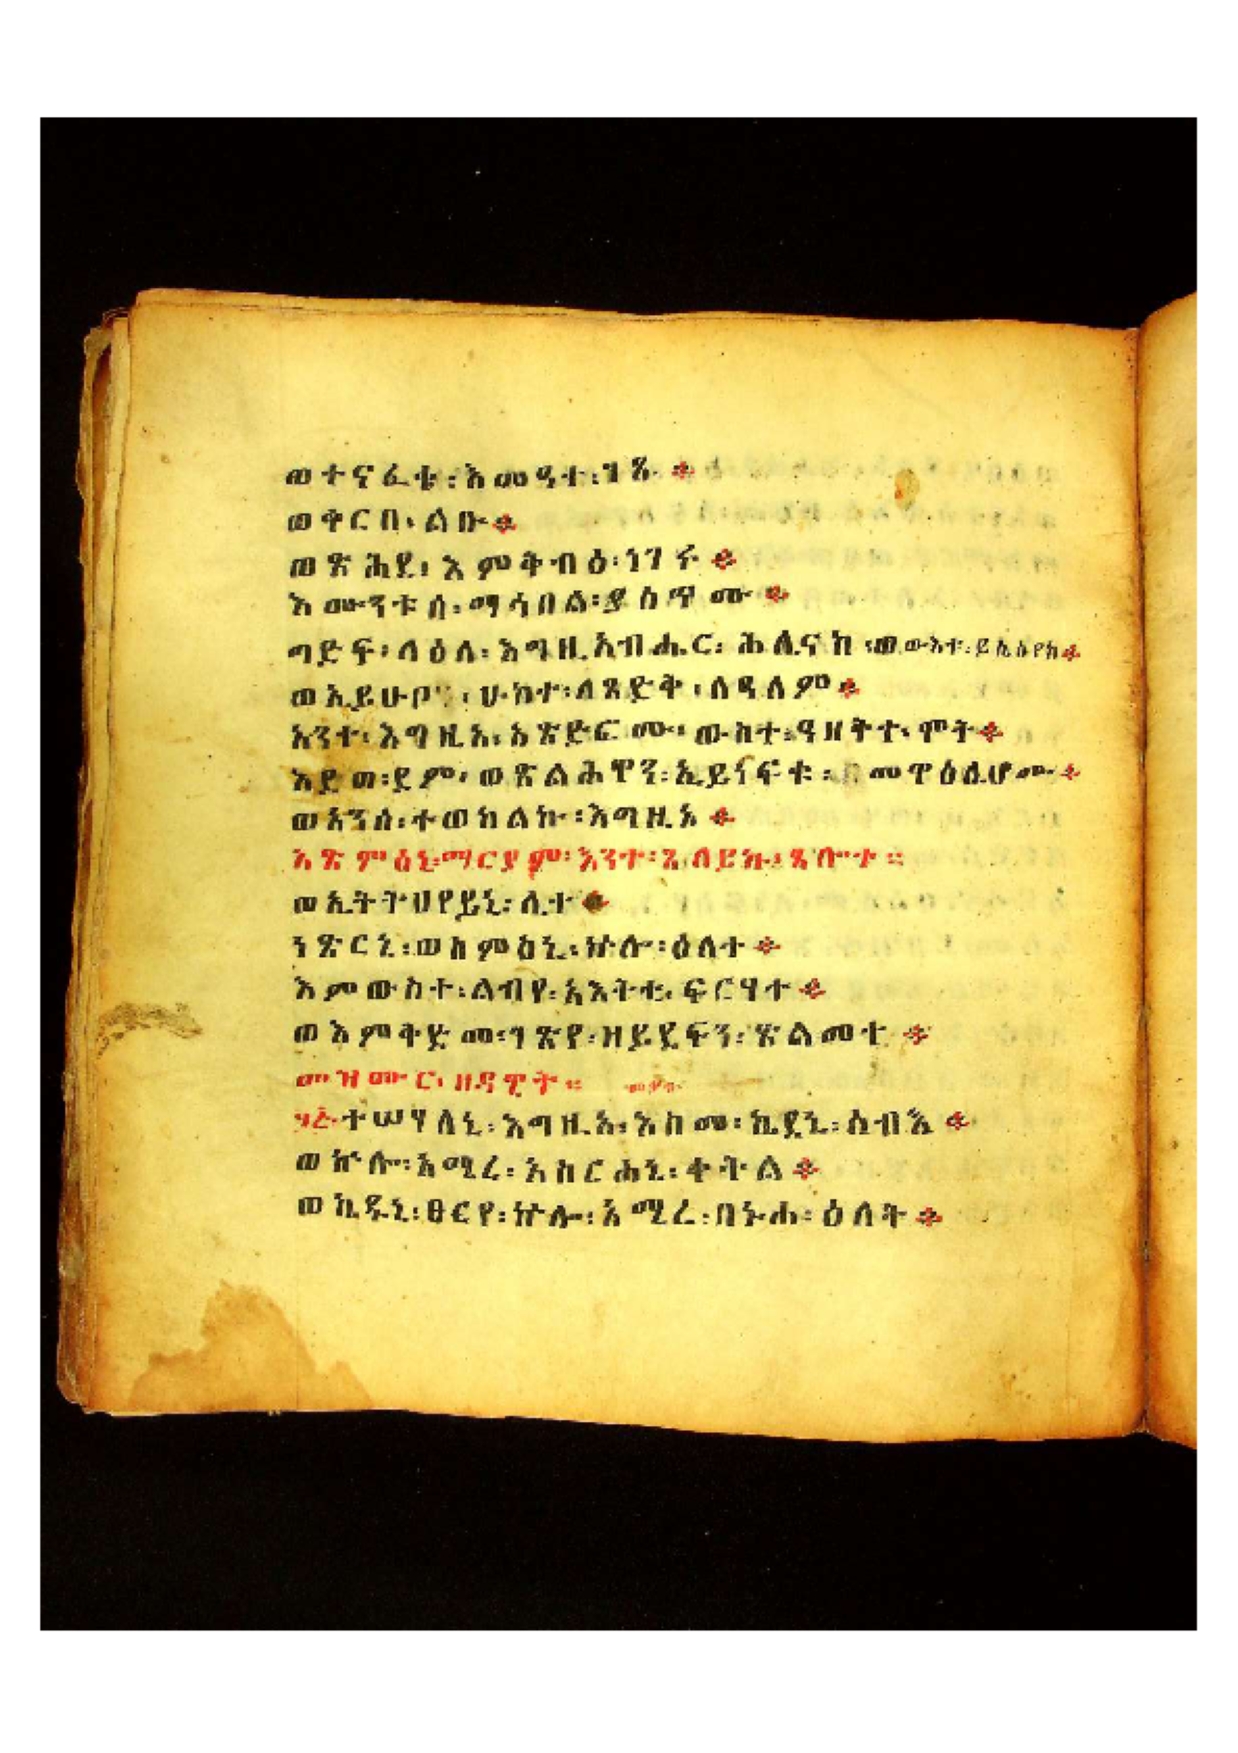 ወተናፈቁ፡እመዓተ፡ገጹ
ወቀርበ፡ልቡ
ወጽሕደ፡እምቅብዕ፡ነገሩ
እሙንቱሰ፡ማሳበል፡ያስጥሙ
ግድፍ፡ላዕለ፡እግዚአብሔር፡ሕሊናከ፡ወውእቱ፡ይሴስየከ
ወኢይሁቦ፡ሁከተ፡ለጻድቅ፡ለዓለም
አንተ፡እግዚአ፡አጽድፎሙ፡ውስተ፡ዓዘቅተ፡ሞት
ዕደወ፡ደም፡ወጽልሕዋን፡ኢይነፍቁ፡መዋዕሊሆሙ
ወአንሰ፡ተወከልኩ፡እግዚአ
አጽምዕኒ፡ማርያም፡እንተ፡እጼሊ፡ጸሎተ።
ወኢትትሀየይኒ፡ሊተ
ነጽርኒ፡ወስምዕኒ፡ኵሎ፡ዕለተ
እምውስተ፡ልብየ፡አእትቲ፡ፍርሃተ
ወእምቅድመ፡ገጽየ፡ዘይደፍን፡ጽልመተ
መዝሙር፡ዘዳዊት።
፶፭ተሣሃለኒ፡እግዚአ፡እስመ፡ኬደኒ፡ሰብእ
ወኵሎ፡አሚረ፡አስርሐኒ፡ቀትል
ወኬዱኒ፡ፀርየ፡ኵሎ፡አሚረ፡በኑኀ፡ዕለት